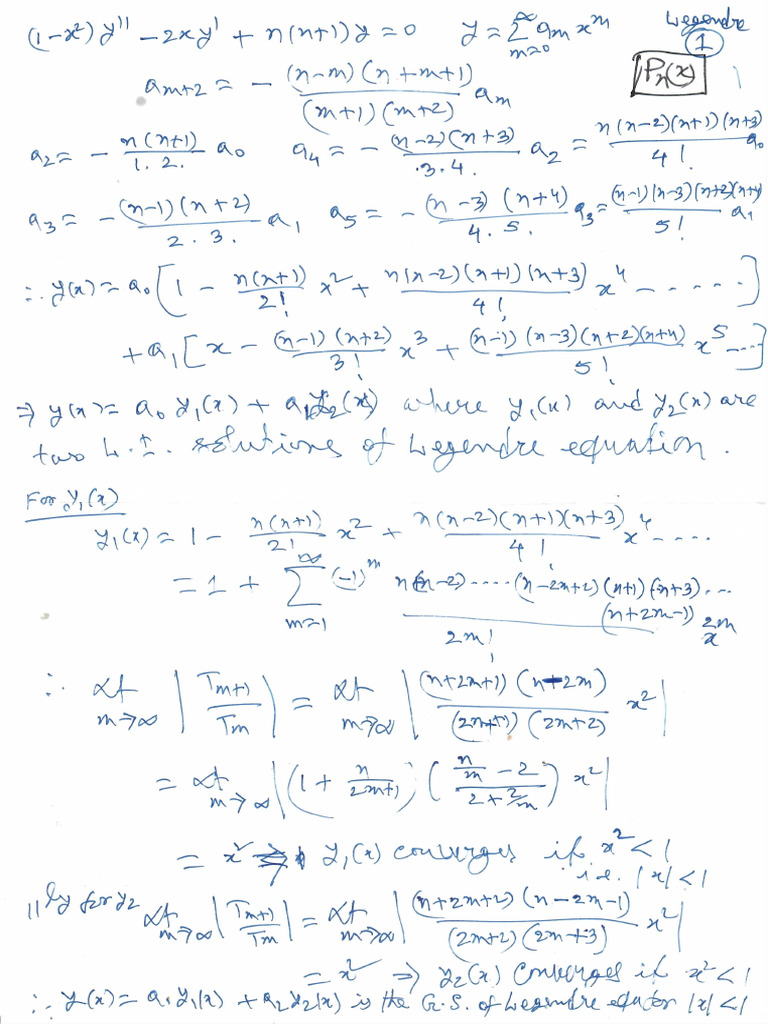 Legendre
(1-x²) y'' - 2xy' + n(n+1) y = 0   y = ∑_{m=0}^{∞} a_m x^m   ①
a_{m+2} = - (n-m)(n+m+1)/((m+1)(m+2)) a_m   P_n(x)
a_2 = - n(n+1)/(1.2.) a_0   a_4 = - (n-2)(n+3)/(.3.4.) a_2 = n(n-2)(n+1)(n+3)/4! a_0
a_3 = - (n-1)(n+2)/(2.3.) a_1   a_5 = - (n-3)(n+4)/(4.5.) a_3 = (n-1)(n-3)(n+2)(n+4)/5! a_1
∴ y(x) = a_0 [1 - n(n+1)/2! x² + n(n-2)(n+1)(n+3)/4! x⁴ - - - - -]
+ a_1 [x - (n-1)(n+2)/3! x³ + (n-1)(n-3)(n+2)(n+4)/5! x⁵ ---]
⇒ y(x) = a_0 y_1(x) + a_1 y_2(x) where y_1(x) and y_2(x) are
two L.I. solutions of Legendre equation.
For y_1(x)
y_1(x) = 1 - n(n+1)/2! x² + n(n-2)(n+1)(n+3)/4! x⁴ ----
= 1 + ∑_{m=1}^{∞} (-1)^m n(n-2)----(n-2m+2)(n+1)(n+3)...(n+2m-1)/2m! x^{2m}
∴ Lt_{m→∞} |T_{m+1}/T_m| = Lt_{m→∞} |(n+2m+1)(n-2m)/((2m+1)(2m+2)) x²|
= Lt_{m→∞} |(1 + n/(2m+1)) ((n/m - 2)/(2 + 2/m)) x²|
= x² ⇒ y_1(x) converges if x² < 1
i.e. |x| < 1
||ly for y_2 Lt_{m→∞} |T_{m+1}/T_m| = Lt_{m→∞} |(n+2m+2)(n-2m-1)/((2m+2)(2m+3)) x²|
= x² ⇒ y_2(x) converges if x² < 1
∴ y(x) = a_1 y_1(x) + a_2 y_2(x) is the G.S. of Legendre |x| < 1